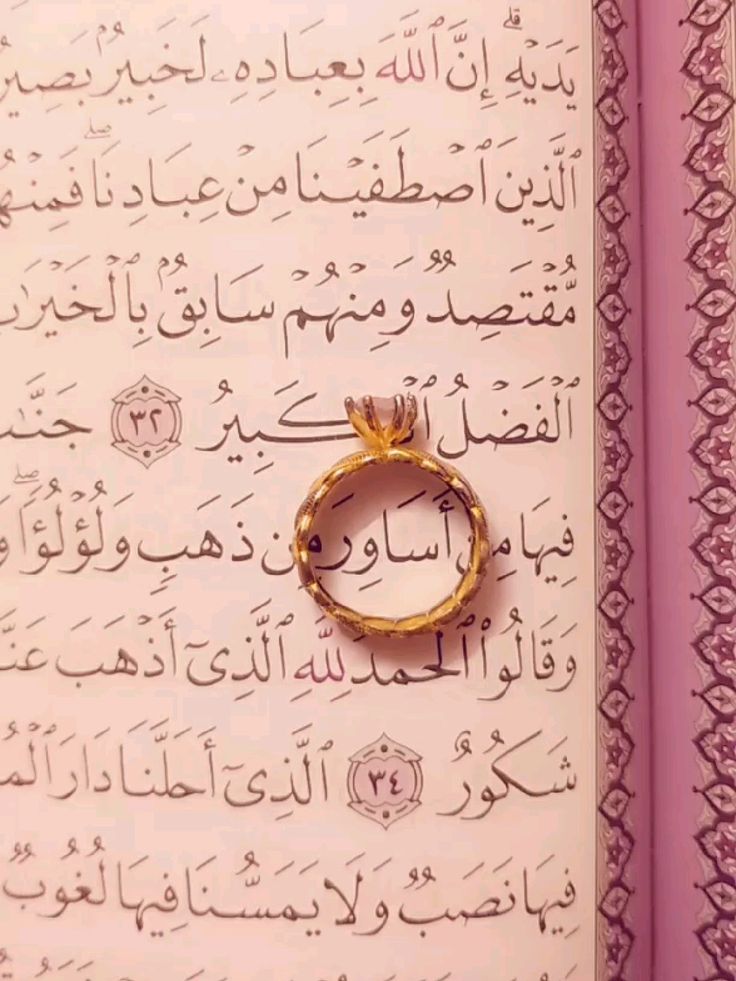 يَدَيْهِ ۗ إِنَّ ٱللَّهَ بِعِبَادِهِۦ لَخَبِيرٌۢ بَصِيرٌ
ٱلَّذِينَ ٱصْطَفَيْنَا مِنْ عِبَادِنَا ۖ فَمِنْهُ
مُّقْتَصِدٌ وَمِنْهُمْ سَابِقٌۢ بِٱلْخَيْرَٰ
ٱلْفَضْلُ ٱلْكَبِيرُ ٣٢ جَنَّٰ
فِيهَا مِنْ أَسَاوِرَ مِن ذَهَبٍ وَلُؤْلُؤًا ۖ وَ
وَقَالُوا۟ ٱلْحَمْدُ لِلَّهِ ٱلَّذِىٓ أَذْهَبَ عَنَّ
شَكُورٌ ٣٤ ٱلَّذِىٓ أَحَلَّنَا دَارَ ٱلْمُ
فِيهَا نَصَبٌ وَلَا يَمَسُّنَا فِيهَا لُغُوبٌ